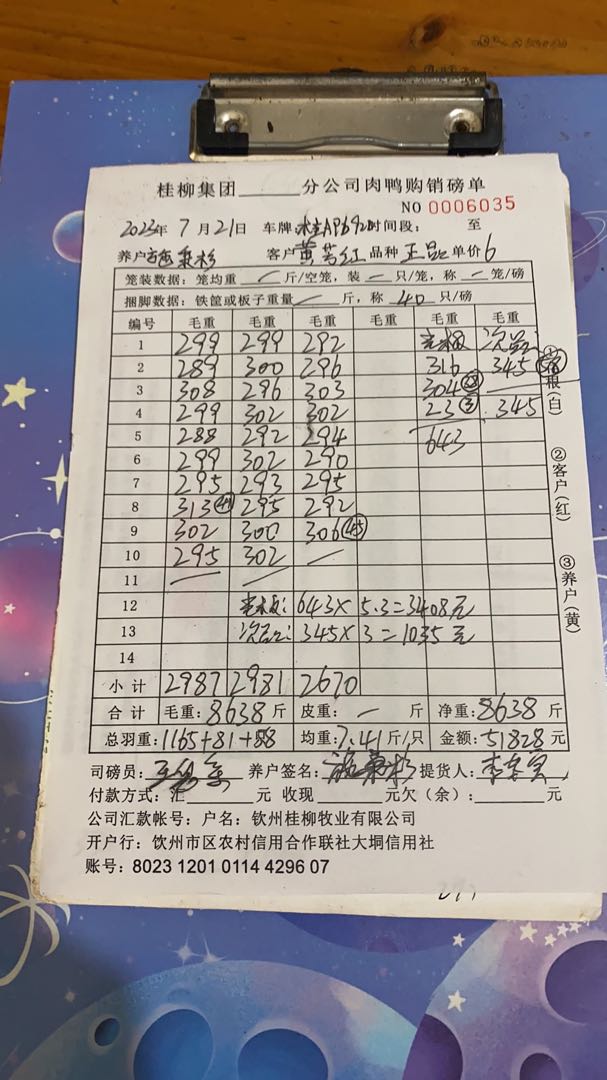 桂柳集团______分公司肉鸭购销磅单
NO 0006035
2023年7月21日 车牌: 时间段: 至
养户: 客户 黄 红 品种 正品 单价 6
笼装数据: 笼均重 — 斤/空笼, 装 — 只/笼, 称 — 笼/磅
捆脚数据: 铁筐或板子重量 — 斤, 称 40 只/磅
编号 毛重 毛重 毛重 毛重 毛重 毛重
1 299 299 292 次品:
2 289 300 296 316 345
3 308 296 303 304
4 299 302 302 23 ③ 345
5 288 292 294 643
6 299 302 290
7 295 293 295
8 313 295 292
9 302 300 306 ㊺
10 295 302 —
11 — —
12 643×5.3=3408元
13 次品: 345×3=1035元
14
小计 2987 2981 2670
合计 毛重: 8638 斤 皮重: — 斤 净重: 8638 斤
总羽重: 1165+81+88 均重: 7.41 斤/只 金额: 51828 元
司磅员: 养户签名: 提货人:
付款方式: 汇______元 收现______元欠(余):______元
公司汇款帐号: 户名: 钦州桂柳牧业有限公司
开户行: 钦州市区农村信用合作联社大垌信用社
账号: 8023 1201 0114 4296 07
①存根(白)
②客户(红)
③养户(黄)